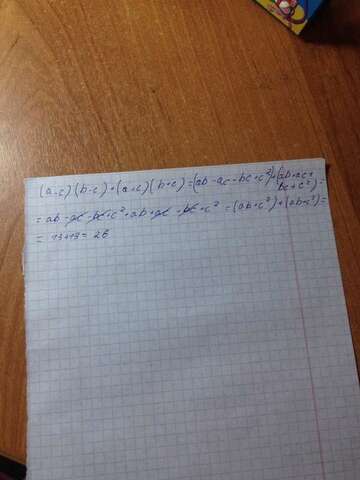 (a-c)(b-c)+(a+c)(b+c)=(ab-ac-bc+c²)+(ab+ac+
bc+c²)=
=ab-ac-bc+c²+ab+ac+bc+c²=(ab+c²)+(ab+c²)=
=13+13=26